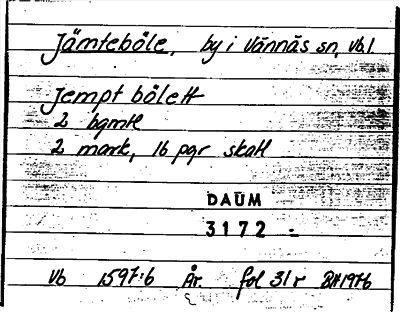 Jämteböle, by i Vännäs sn, Vb.l.
Jempt bölett
2 bgmtl
2 mark, 16 pgr skatt
DAUM
3172 -
Vb 1597:6 År. fol 31 r BH 1976